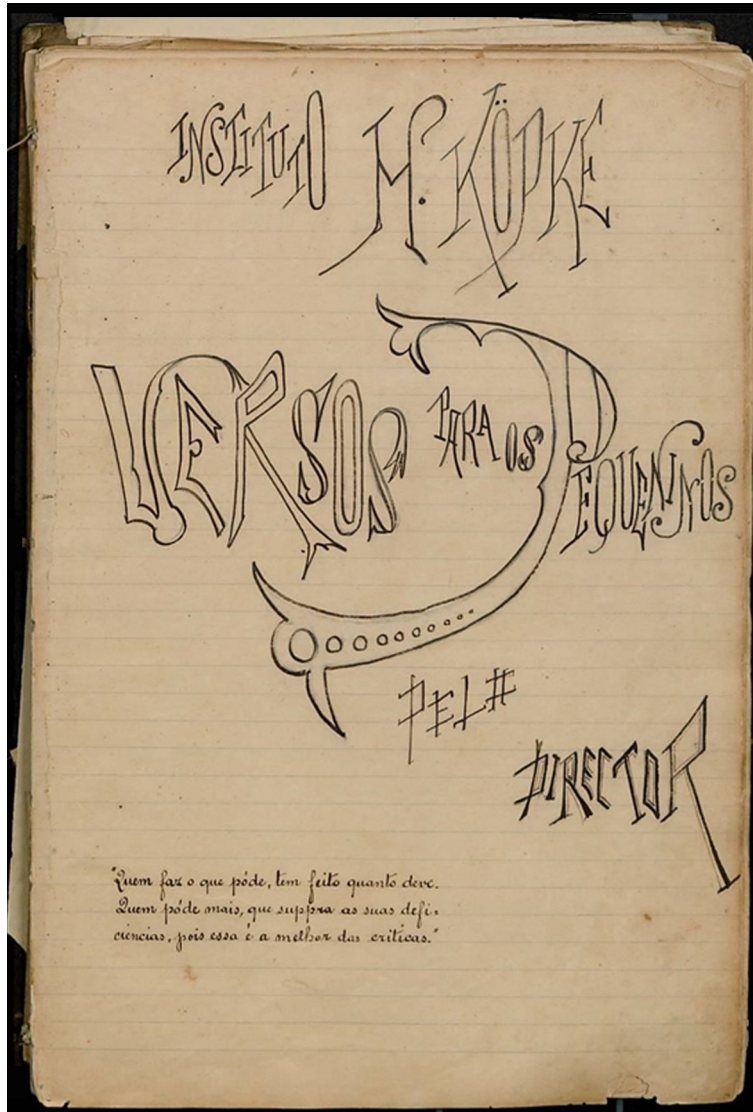 INSTITUTO H. KÖPKE
VERSOS PARA OS PEQUENNOS
PELO
DIRECTOR
"Quem faz o que póde, tem feito quanto deve.
Quem póde mais, que suppra as suas defi-
ciencias, pois essa é a melhor das criticas."